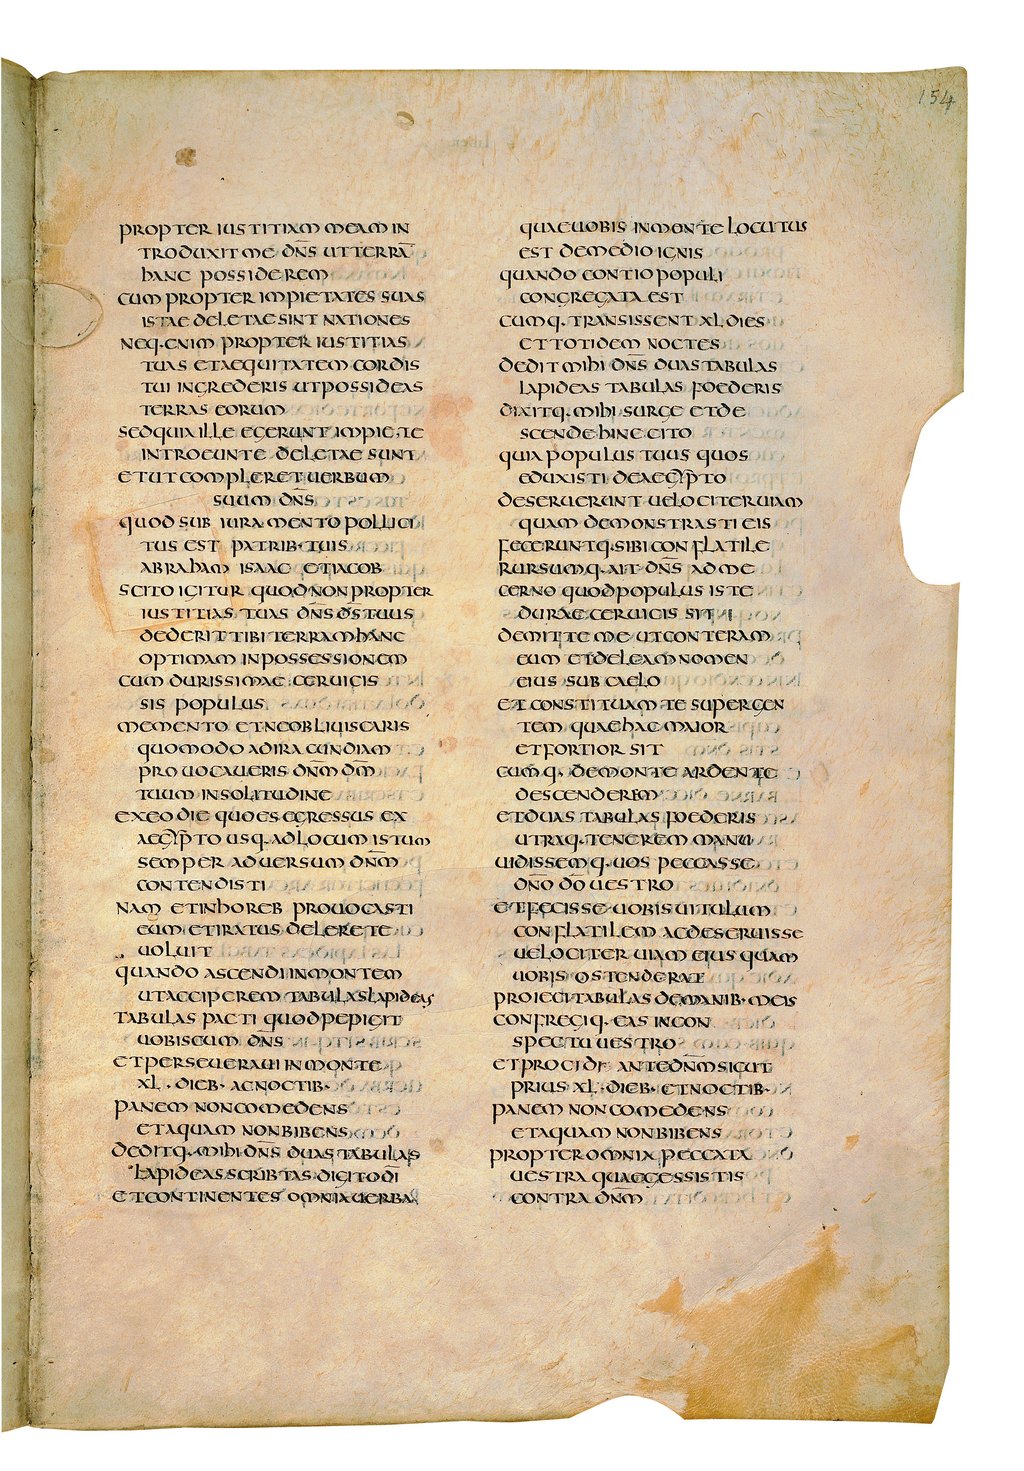 154
PROPTER IUSTITIAM MEAM IN
TRODUXIT ME DN̅S UT TERRA̅
HANC POSSIDEREM
CUM PROPTER IMPIETATES SUAS
ISTAE DELETAE SINT NATIONES
NEQ· ENIM PROPTER IUSTITIAS
TUAS ET AEQUITATEM CORDIS
TUI INGREDERIS UT POSSIDEAS
TERRAS EORUM
SED QUIA ILLE EGERUNT IMPIE TE
INTROEUNTE DELETAE SUNT
ET UT COMPLERET UERBUM
SUUM DN̅S
QUOD SUB IURAMENTO POLLICI
TUS EST PATRIB· TUIS
ABRAHAM ISAAC ET IACOB
SCITO IGITUR QUOD NON PROPTER
IUSTITIAS TUAS DN̅S DS̅ TUUS
DEDERIT TIBI TERRAM HANC
OPTIMAM IN POSSESSIONEM
CUM DURISSIMAE CERUICIS
SIS POPULUS
MEMENTO ET NE OBLIUISCARIS
QUOMODO AD IRACUNDIAM
PROUOCAUERIS DN̅M DM̅
TUUM IN SOLITUDINE
EX EO DIE QUO ES EGRESSUS EX
AEGYPTO USQ· AD LOCUM ISTUM
SEMPER ADUERSUM DN̅M
CONTENDISTI
NAM ET IN HOREB PROUOCASTI
EUM ET IRATUS DELERE TE
UOLUIT
QUANDO ASCENDI IN MONTEM
UT ACCIPEREM TABULAS LAPIDEAS
TABULAS PACTI QUOD PEPIGIT
UOBISCUM DN̅S
ET PERSEUERAUI IN MONTE
XL · DIEB· AC NOCTIB·
PANEM NON COMEDENS
ET AQUAM NON BIBENS
DEDITQ· MIHI DN̅S DUAS TABULAS
LAPIDEAS SCRIBTAS DIGITO DI̅
ET CONTINENTES OMNIA UERBA
QUAE UOBIS IN MONTE LOCUTUS
EST DE MEDIO IGNIS
QUANDO CONTIO POPULI
CONGREGATA EST
CUMQ· TRANSISSENT XL DIES
ET TOTIDEM NOCTES
DEDIT MIHI DN̅S DUAS TABULAS
LAPIDEAS TABULAS FOEDERIS
DIXITQ· MIHI SURGE ET DE
SCENDE HINC CITO
QUIA POPULUS TUUS QUOS
EDUXISTI DE AEGYPTO
DESERUERUNT UELOCITER UIAM
QUAM DEMONSTRASTI EIS
FECERUNTQ· SIBI CONFLATILE
RURSUMQ· AIT DN̅S AD ME
CERNO QUOD POPULUS ISTE
DURAE CERUICIS SIT
DEMITTE ME UT CONTERAM
EUM ET DELEAM NOMEN
EIUS SUB CAELO
ET CONSTITUAM TE SUPER GEN
TEM QUAE HAC MAIOR
ET FORTIOR SIT
CUMQ· DE MONTE ARDENTE
DESCENDEREM
ET DUAS TABULAS FOEDERIS
UTRAQ· TENEREM MANU
UIDISSEMQ· UOS PECCASSE
DN̅O DO̅ UESTRO
ET FECISSE UOBIS UITULUM
CONFLATILEM AC DESERUISSE
UELOCITER UIAM EIUS QUAM
UOBIS OSTENDERAT
PROIECI TABULAS DE MANIB· MEIS
CONFREGIQ· EAS IN CON
SPECTU UESTRO
ET PROCIDI ANTE DN̅M SICUT
PRIUS XL· DIEB· ET NOCTIB·
PANEM NON COMEDENS
ET AQUAM NON BIBENS
PROPTER OMNIA PECCATA
UESTRA QUAE GESSISTIS
CONTRA DN̅M